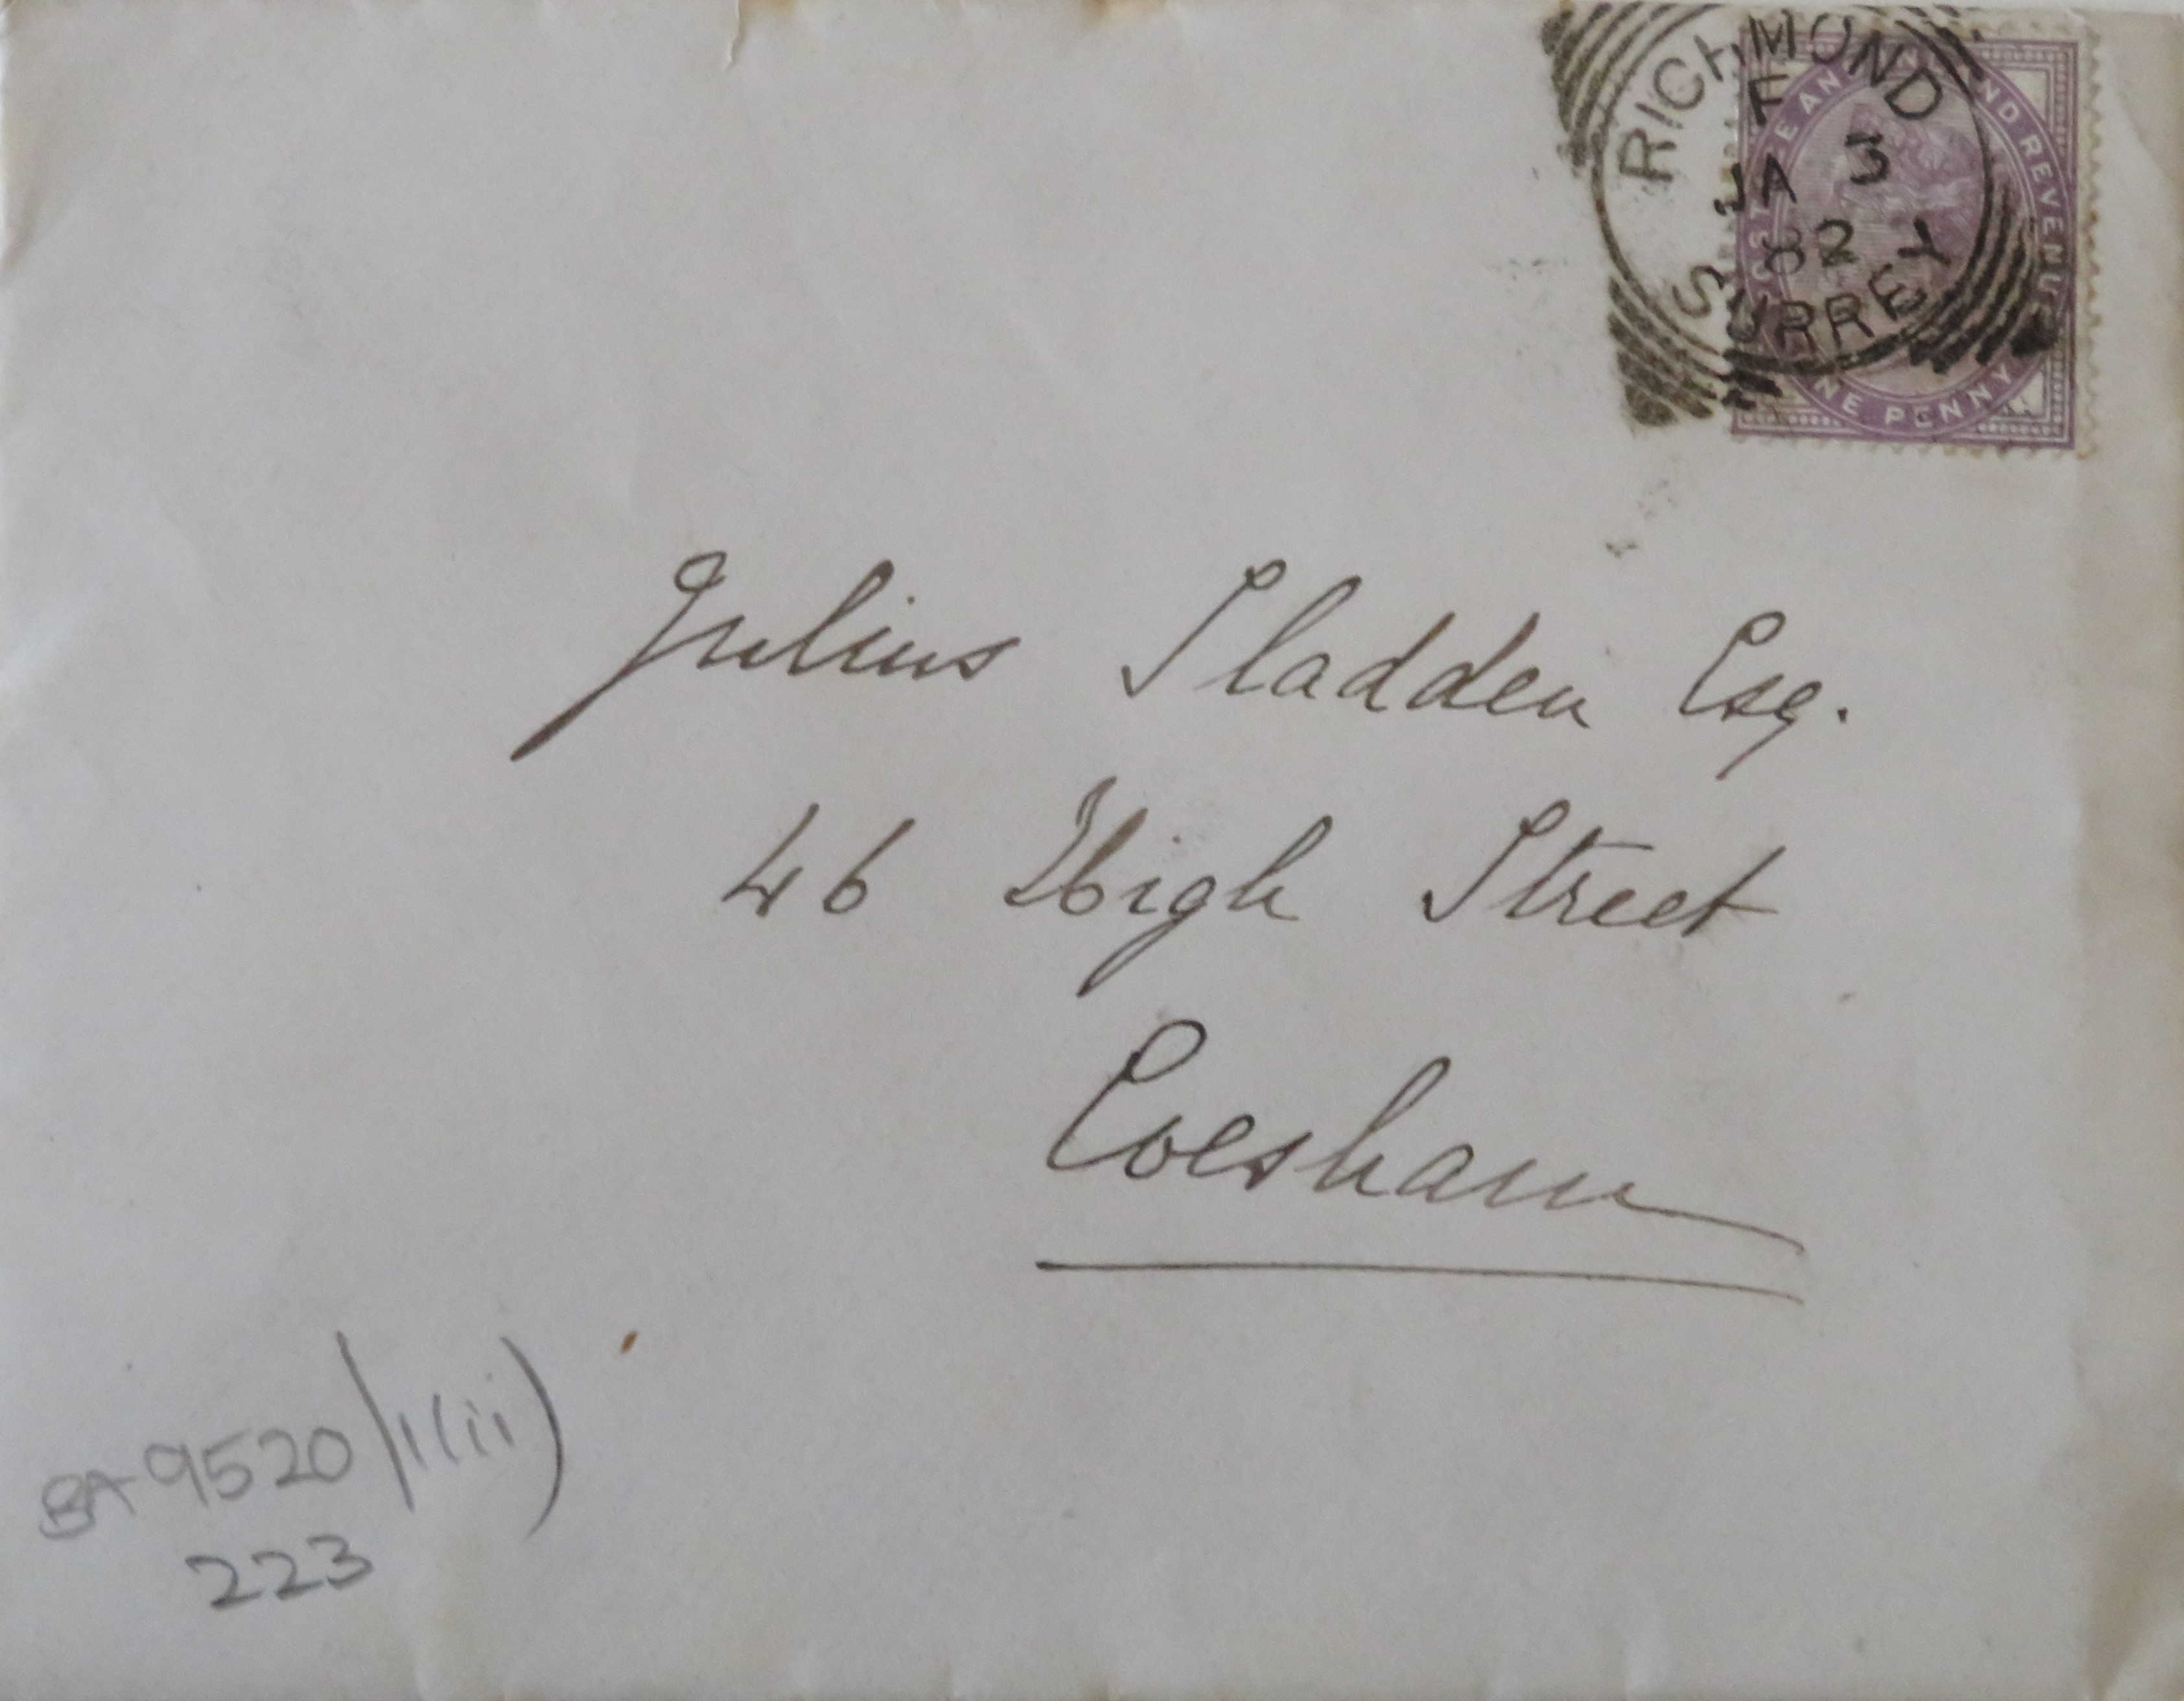 RICHMOND
F
JA 3
82
SURREY
POSTAGE AND INLAND REVENUE
ONE PENNY
Julius Sladden Esq.
46 High Street
Evesham
BA 9520/1(ii)
223